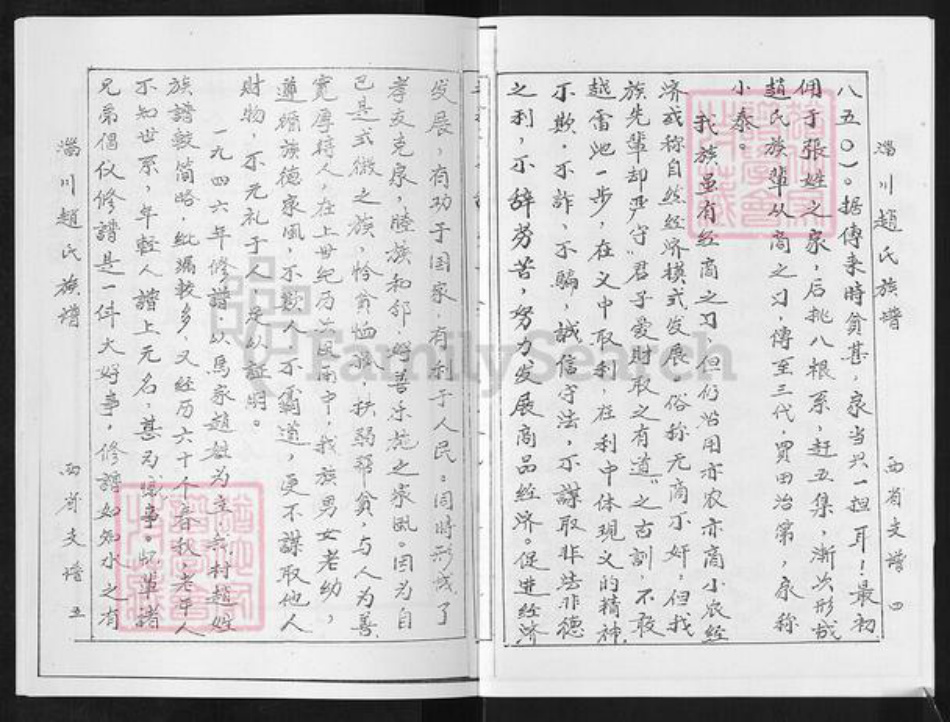 淄川趙氏族譜 西省支譜 四
八五〇)。据傳来時貧甚,家当只一担耳!最初
佣于張姓之家,后挑八根系,赶五集,漸次形成
趙氏族輩从商之习,傳至三代,買田治第,家称
小泰。
我族虽有经商之习,但仍沿用亦农亦商小农经
济或称自然经济模式发展,俗称无商不奸,但我
族先輩却严守"君子爱財取之有道"之古訓,不敢
越雷池一步,在义中取利,在利中体現义的精神
不欺、不詐、不騙,誠信守法,不謀取非法非德
之利,不辞劳苦,努力发展商品经济。促進经济
发展,有功于国家,有利于人民。同時形成了
孝友克家,睦族和邻,好善乐施之家風。因为自
己是式微之族,怜貧恤孤,扶弱帮貧,与人为善
寬厚待人,在上世纪历次風雨中,我族男女老幼,
遵循族德家風,不欺人,不霸道,更不謀取他人
財物,不无礼于人,足以証明。
一九四六年修譜以馬家趙姓为主,六村趙姓
族譜較简略,纰漏較多,又经历六十个春秋,老年人
不知世系,年輕人譜上无名,甚为憾事。好輩諸
兄弟倡仪修譜是一件大好事,修譜如知水之有
淄川趙氏族譜 西省支譜 五
FamilySearch